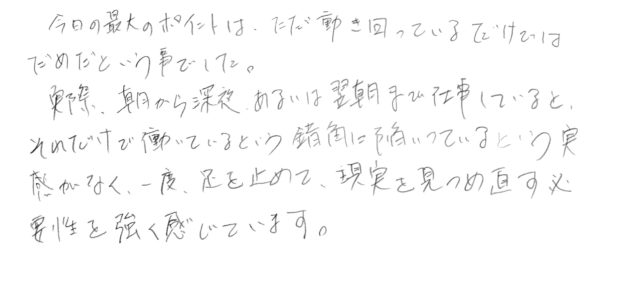 今日の最大のポイントは、ただ動き回っているだけでは
だめだという事でした。
実際、朝から深夜、あるいは翌朝まで仕事していると、
それだけで働いているという錯角に陥いっているという実
感がなく、一度、足を止めて、現実を見つめ直す必
要性を強く感じています。